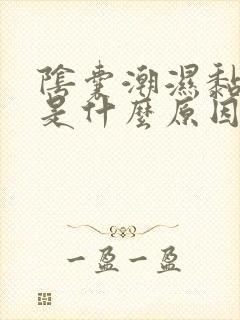 陰囊潮濕黏
是什麼原因
一盈一盈